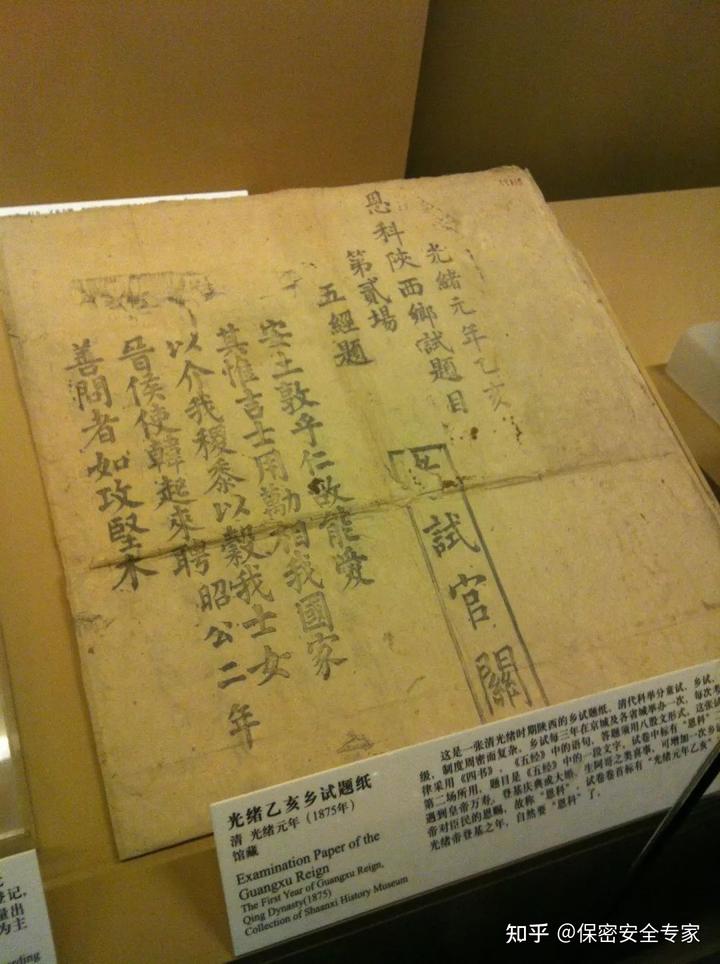 光緒元年乙亥
恩科陝西鄉試題目
第貳場
五經題
安土敦乎仁故能愛
其惟吉士用勱相我國家
以介我稷黍以穀我士女
晉侯使韓起來聘昭公二年
善問者如攻堅木
試官關
光绪乙亥乡试题纸
清 光绪元年(1875年)
馆藏
Examination Paper of the
Guangxu Reign
The First Year of Guangxu Reign,
Qing Dynasty(1875)
Collection of Shaanxi History Museum
这是一张清光绪时期陕西的乡试题纸。清代科举分童试、乡试、
级,制度周密而复杂。乡试每三年在京城及各省城举办一次,每次考
律采用《四书》、《五经》中的语句,答题须用八股文形式。这张试
第二场所用,题目是《五经》中的一段文字。试卷中标有"恩科"
遇到皇帝万寿、登基庆典或大婚、生阿哥之类喜事,可增加一次乡试
帝对臣民的恩赐,故称"恩科"。试卷卷首标有"光绪元年乙亥"
光绪帝登基之年,自然要"恩科"了。
记,
量出
为主
知乎 @保密安全专家